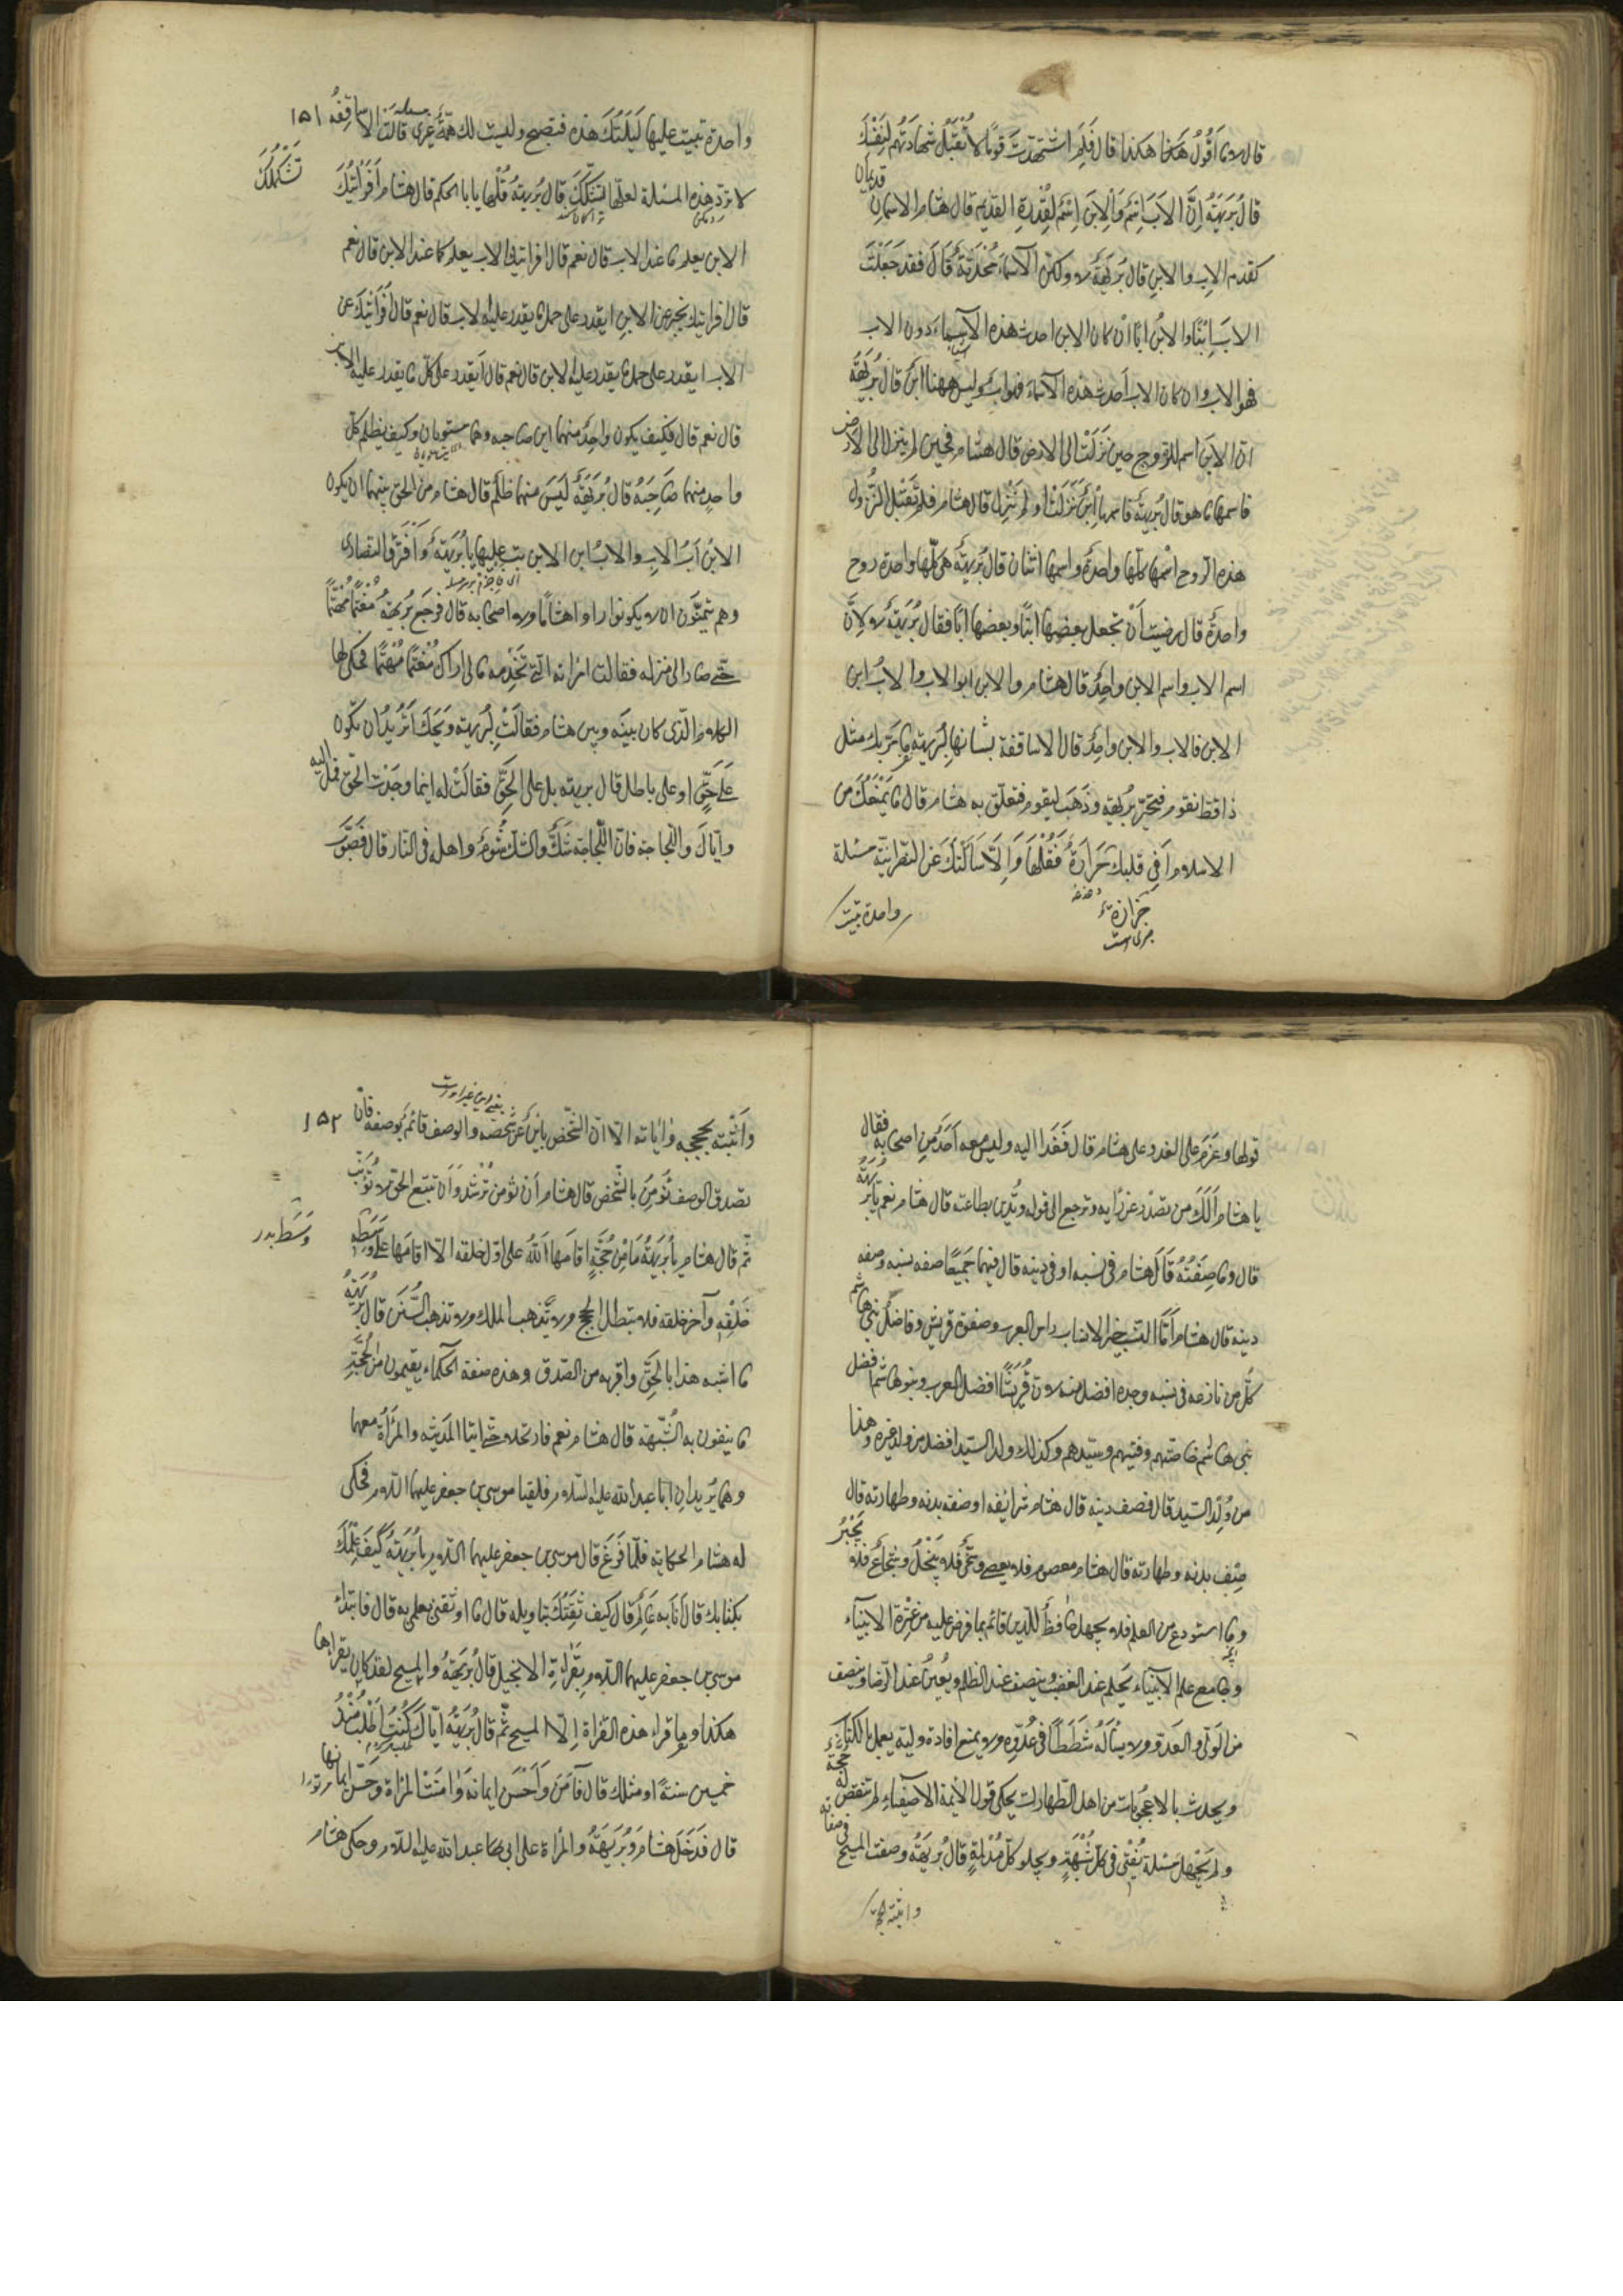 قال لا ما اقول هكذا هكذا قال فلم استشهدت قوما لا تقبل شهادتهم لنفسك
قال بريهة ان الاب اسم والابن اسم لقدرة القديم قال هشام الاسمان قديمان
كقدم الاب والابن قال بريهة لا ولكن الاسماء محدثة قال فقد جعلت
الاب ابنا والابن ابا ان كان الابن احدث هذه الاسماء دون الاب
فهو الاب وان كان الاب احدث هذه الاسماء فهو اب وليس ههنا ابن قال بريهة
ان الابن اسم للروح حين نزلت الى الارض قال هشام فحين لم ينزل الى الارض
فاسمها ما هو قال بريهة فاسمها ابن نزلت او لم تنزل قال هشام فقبل النزول
هذه الروح اسمها كلها واحدة واسمها اثنان قال بريهة هي كلها واحدة روح
واحدة قال رضيت ان تجعل بعضها ابنا وبعضها ابا فقال بريهة لا لان
اسم الاب واسم الابن واحد قال هشام والابن ابو الاب والاب ابن
الابن فالاب والابن واحد قال الاساقفة بلسانها لبريهة ما مر بك مثل
ذا قط تقوم فتحير بريهة وذهب ليقوم فتعلق به هشام قال ما يمنعك من
الاسلام افي قلبك حرارة فقلها والا سالتك عن النصرانية مسئلة
واحدة تبيت
واحدة تبيت عليها ليلتك هذه فتصبح وليست لك همة غيري قالت الاساقفة
۱۵۱
لا ترد هذه المسئلة لعلها تشكك قال بريهة قلها يا با الحكم قال هشام افرايتك
الابن يعلم ما عند الاب قال نعم قال افرايتك الاب يعلم كلما عند الابن قال نعم
قال افرايتك تخبر عن الابن ايقدر على حمل ما يقدر عليه الاب قال نعم قال افرايتك عن
الاب ايقدر على حمل ما يقدر عليه الابن قال نعم قال ايقدر على كل ما يقدر عليه الاب
قال نعم قال فكيف يكون واحد منهما ابن صاحبه وهما متساويان وكيف يظلم كل
واحد منهما صاحبه قال بريهة ليس منهما ظلم قال هشام من الحق بينهما ان يكون
الابن اب الاب والاب ابن الابن بت عليها يا بريهة وافترق النصارى
وهم يتمنون ان لا يكونوا راوا هشاما ولا اصحابه قال فرجع بريهة مغتما مهتما
حتى صار الى منزله فقالت امراته التي تخدمه مالي اراك مغتما مهتما فحكى لها
الكلام الذي كان بينه وبين هشام فقالت لبريهة ويحك اتريد ان تكون
على حق او على باطل قال بريهة بل على الحق فقالت له اينما وجدت الحق فمل اليه
واياك واللجاجة فان اللجاجة شك والشك شوم واهله في النار قال فصوب
قولها وعزم على الغدو على هشام قال فغدا اليه وليس معه احد من اصحابه فقال
يا هشام الك من تصدر عن رايه وترجع الى قوله وتدين بطاعته قال هشام نعم يا بريهة
قال وما صفته قال هشام في نسبه او في دينه قال فيهما جميعا صفه نسبه وصفه
دينه قال هشام اما النسب خير الانساب راس العرب وصفوة قريش وفاضل بني هاشم
كل من نازعه في نسبه وجده افضل منه لان قريشا افضل العرب وبنو هاشم افضل
بني هاشم خاصتهم وفتيهم وسيدهم وكذلك ولد السيد افضل من ولد غيره وهذا
من ولد السيد قال فصف دينه قال هشام شرائعه او صفة بدنه وطهارته قال
صف بدنه وطهارته قال هشام معصوم فلا يعصي وسخي فلا يبخل وشجاع فلا يجبن
وما استودع من العلم فلا يجهل حافظ للدين قائم بما فرض عليه من عترة الانبياء
وجامع علم الانبياء يحلم عند الغضب وينصف عند الظلم ويعين عند الرضا وينصف
من الولي والعدو ولا يساله شططا في عدوه ولا يمنع افادة وليه يعمل بالكتاب
ويحدث بالاعجوبات من اهل الطهارات يحكي قول الائمة الاصفياء لم تنقض له حجة
ولم يجهل مسئلة يفتي في كل شبهة ويجلو كل مدلهمة قال بريهة وصفت المسيح في صفاته
واثبته بحججه
واثبته بحججه واياته الا ان الشخص باين عن شخصه والوصف قائم بوصفه فان
۱۵۲
تصدق الوصف نؤمن بالشخص قال هشام ان تؤمن ترشد وان تتبع الحق لا تونب
ثم قال هشام يا بريهة ما من حجة اقامها الله على اول خلقه الا اقامها على وسط
وسط بدر
خلقه وآخر خلقه فلا تبطل الحجج ولا تذهب الملل ولا تذهب السنن قال بريهة
ما اشبه هذا بالحق واقربه من الصدق وهذه صفة الحكماء يقيمون من الحجة
ما ينفون به الشبهة قال هشام نعم فارتحلا حتى اتيا المدينة والمراة معهما
وهما يريدان ابا عبد الله عليه السلام فلقيا موسى بن جعفر عليهما السلام فحكى
له هشام الحكاية فلما فرغ قال موسى بن جعفر عليهما السلام يا بريهة كيف علمك
بكتابك قال انا به عالم قال كيف ثقتك بتاويله قال ما اوثقني بعلمي به قال فابتداء
موسى بن جعفر عليهما السلام بقراءة الانجيل قال بريهة والمسيح لقد كان يقراها
هكذا وما قراء هذه القراة الا المسيح ثم قال بريهة اياك كنت اطلب منذ
خمسين سنة او مثلك قال فآمن وحسن ايمانه وامنت المراة وحسن ايمانها
قال فدخل هشام وبريهة والمراة على ابي عبد الله عليه السلام وحكى هشام